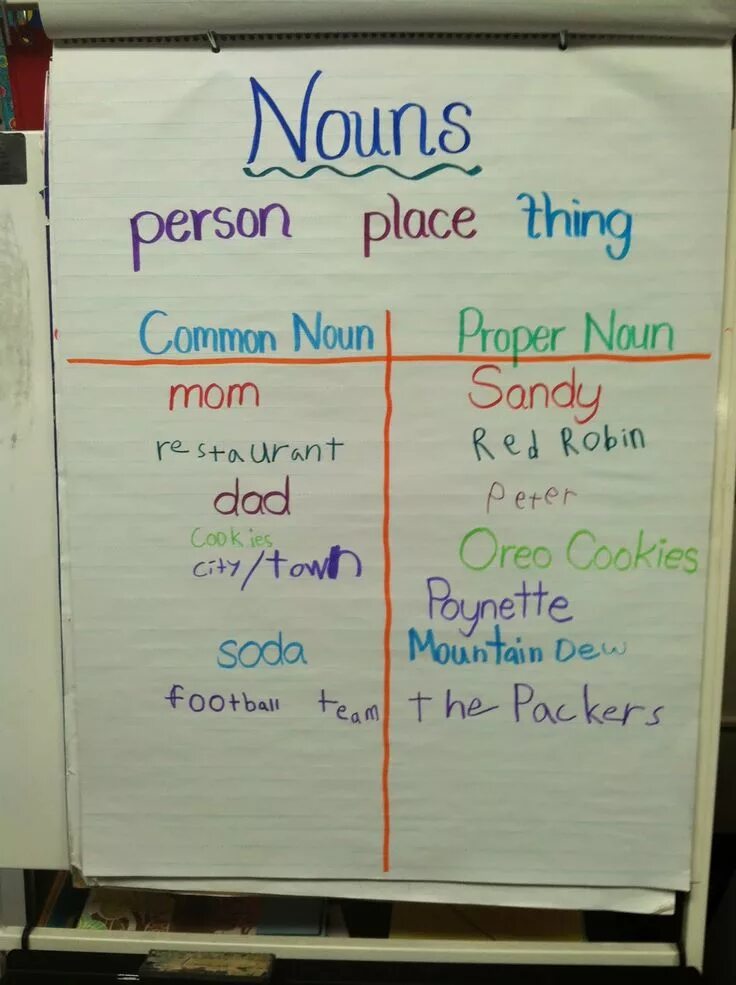 Nouns
person place thing
Common Noun Proper Noun
mom Sandy
restaurant Red Robin
dad Peter
Cookies Oreo Cookies
city/town Poynette
soda Mountain Dew
football team the Packers